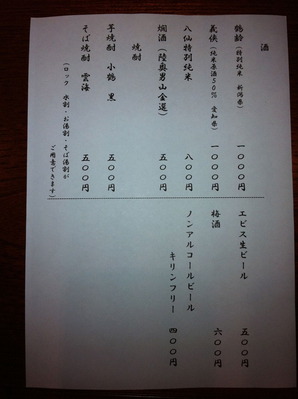 酒
鶴齢(特別純米 新潟県) 一〇〇〇円
義侠(純米原酒50% 愛知県) 一〇〇〇円
八仙特別純米 八〇〇円
燗酒(陸奥男山金選) 五〇〇円
焼酎
芋焼酎 小鶴 黒 五〇〇円
そば焼酎 雲海 五〇〇円
(ロック 水割・お湯割・そば湯割が
ご用意できます)
エビス生ビール 五〇〇円
梅酒 六〇〇円
ノンアルコールビール
キリンフリー 四〇〇円